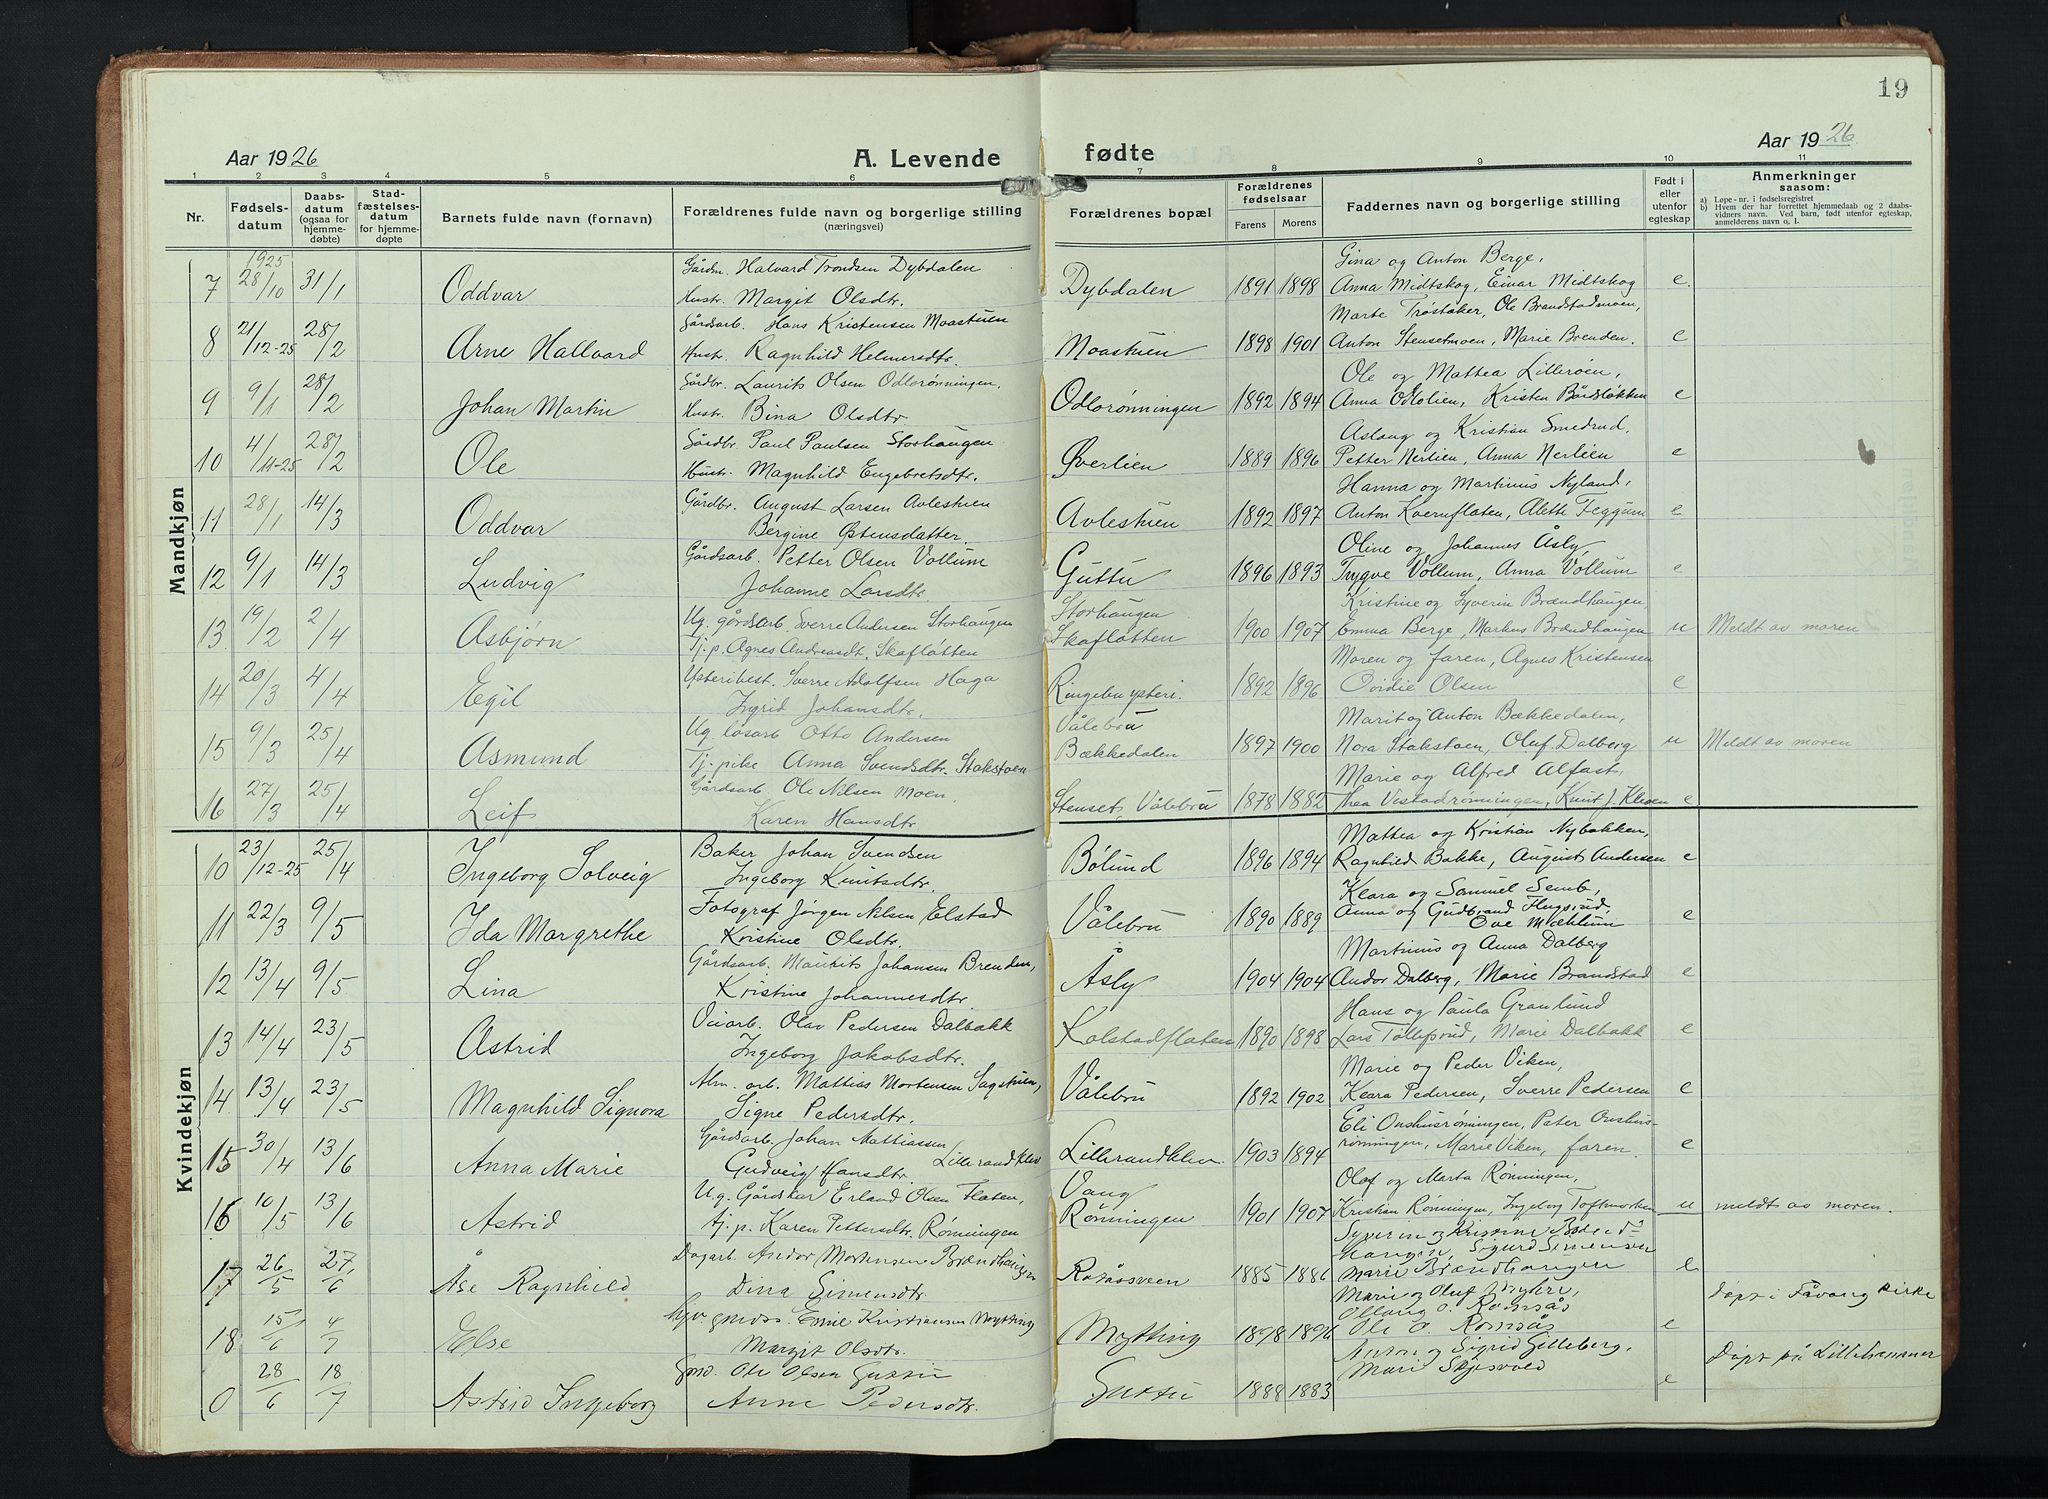 19
Aar 1926
A. Levende
fødte
Aar 1926
1 2 3 4 5 6 7 8 9 10 11
Nr.
Fødsels-
datum
Daabs-
datum
(ogsaa for
hjemme-
døbte)
Stad-
fæstelses-
datum
for hjemme-
døpte
Barnets fulde navn (fornavn)
Forældrenes fulde navn og borgerlige stilling
(næringsvei)
Forældrenes bopæl
Forældrenes
fødselsaar
Farens Morens
Faddernes navn og borgerlige stilling
Født i
eller
utenfor
egteskap
Anmerkninger
saasom:
a) Løpe-nr. i fødselsregistret
b) Hvem der har forrettet hjemmedaab og 2 daabs-
vidners navn. Ved barn, født utenfor egteskap,
anmelderens navn o. l.
Mandkjøn
1925
Gårdm. Halvard Trondsen Dybdalen
Gina og Anton Berge,
7 28/10 31/1 Oddvar Hustr. Margit Olsdtr. Dybdalen 1891 1898 Anna Midtskog, Einar Midtskog e.
Gårdsarb. Hans Kristensen Moastuen
Marte Trøståker, Ole Brandstadmoen,
8 21/12-25 28/2 Arne Hallvard Hustr. Ragnhild Helmersdtr. Moastuen 1898 1901 Anton Stensetmoen, Marie Brenden. e
Gårdbr. Laurits Olsen Odlorønningen,
Ole og Mattea Lillerøen,
9 9/1 28/2 Johan Martin Hustr. Bina Olsdtr. Odlorønningen 1892 1894 Anna Odlolien, Kristen Bårdsløkken e
Gårdbr. Paul Paulsen Storhaugen
Aslaug og Kristian Smedrud,
10 4/11-25 28/2 Ole Hustr. Magnhild Engebretsdtr. Øverlien 1889 1896 Petter Nerlien, Anna Nerlien e
Gårdbr. August Larsen Avlestuen
Hanna og Martinius Nyland,
11 28/1 14/3 Oddvar Bergine Østensdatter. Avlestuen 1892 1897 Anton Kvernflaten, Alette Feggum e
Gårdsarb. Petter Olsen Vollum
Oline og Johannes Åsly,
12 9/1 14/3 Ludvig Johanne Larsdtr. Guttu 1896 1893 Trygve Vollum, Anna Vollum e
Ug. gårdsarb. Sverre Andersen Storhaugen Storhaugen
Kristine og Syverin Brændhaugen,
13 19/2 2/4 Asbjørn Tj.p. Agnes Andreasdt. Skafløtten Skafløtten 1900 1907 Emma Berge, Markus Brændhaugen u Meldt av moren
Ysteribest. Sverre Adolfsen Haga
Moren og faren, Agnes Kristensen
14 20/3 4/4 Egil Ingrid Johansdtr. Ringebu ysteri. 1892 1896 Ovidie Olsen e
Ug. løsarb Otto Andersen Vålebru
Marit og Anton Bækkedalen,
15 9/3 25/4 Asmund Tj. pike Anna Svendsdtr. Stakstoen Bækkedalen 1897 1900 Nora Stakstoen, Oluf Dalberg u Meldt av moren
Gårdsarb Ole Nilsen Moen,
Marie og Alfred Alfast,
16 27/3 25/4 Leif Karen Hansdtr Stenset, Vålebru 1878 1882 Thea Vestadrønningen, Knut J. Kleven e
Kvindekjøn
Baker Johan Svendsen
Mattea og Kristian Nybakken,
10 23/12-25 25/4 Ingeborg Solveig Ingeborg Knutsdtr. Bølund 1896 1894 Ragnhild Bakke, August Andersen e
Fotograf Jørgen Nilsen Elstad
Klara og Samuel Semb,
11 22/3 9/5 Ida Margrethe Kristine Olsdtr. Vålebru 1890 1889 Anna og Gudbrand Flugsrud, e
Ove Mæhlum
Gårdsarb. Maurits Johansen Brenden,
Martinius og Anna Dalberg
12 13/4 9/5 Lina Kristine Johannesdtr. Åsly 1904 1904 Andor Dalberg, Marie Brandstad e
Veiarb. Olav Pedersen Dalbakk
Hans og Paula Granlund
13 14/4 23/5 Astrid Ingeborg Jakobsdtr. Kolstadflaten 1890 1898 Lars Tollefsrud, Marie Dalbakk e
Alm. arb. Mattias Mortensen Sagstuen,
Marie og Peder Viken,
14 13/4 23/5 Magnhild Signora Signe Pedersdtr. Vålebru 1892 1902 Klara Pedersen, Sverre Pedersen e
Gårdsarb. Johan Mattiassen Lillerandklev
Eli Onshusrønningen, Peter Onshus-
15 30/4 13/6 Anna Marie Gudveig Hansdtr. Lillerandklev 1903 1894 rønningen, Marie Viken, faren. e
Ug. Gårdskar Erland Olsen Flaten, Vang
Olaf og Marta Rønningen,
16 10/5 13/6 Astrid tj.p. Karen Pettersdtr. Rønningen Rønningen 1901 1907 Kristian Rønningen, Ingeborg Toftmarken u meldt av moren.
Dagarb. Andor Mortensen Brændhaugen
haugen, Sigurd Simensen
17 26/5 27/6 Åse Ragnhild Dina Simensdtr. 1885 1886 Marie Brændhaugen e
Marie og Oluf
Døpt i Fåvang kirke
Kristiansen Mytting
O. Romsås
18 15/6 4/7 Else Margit Olsdtr. Mytting 1898 1896 Ole O. Romsås e
Anton og Sigrid Gilleberg,
Døpt på Lillehammer
Gmd. Ole Olsen Guttu
0 28/6 18/7 Astrid Ingeborg Anne Pedersdtr. Guttu 1888 1883 e